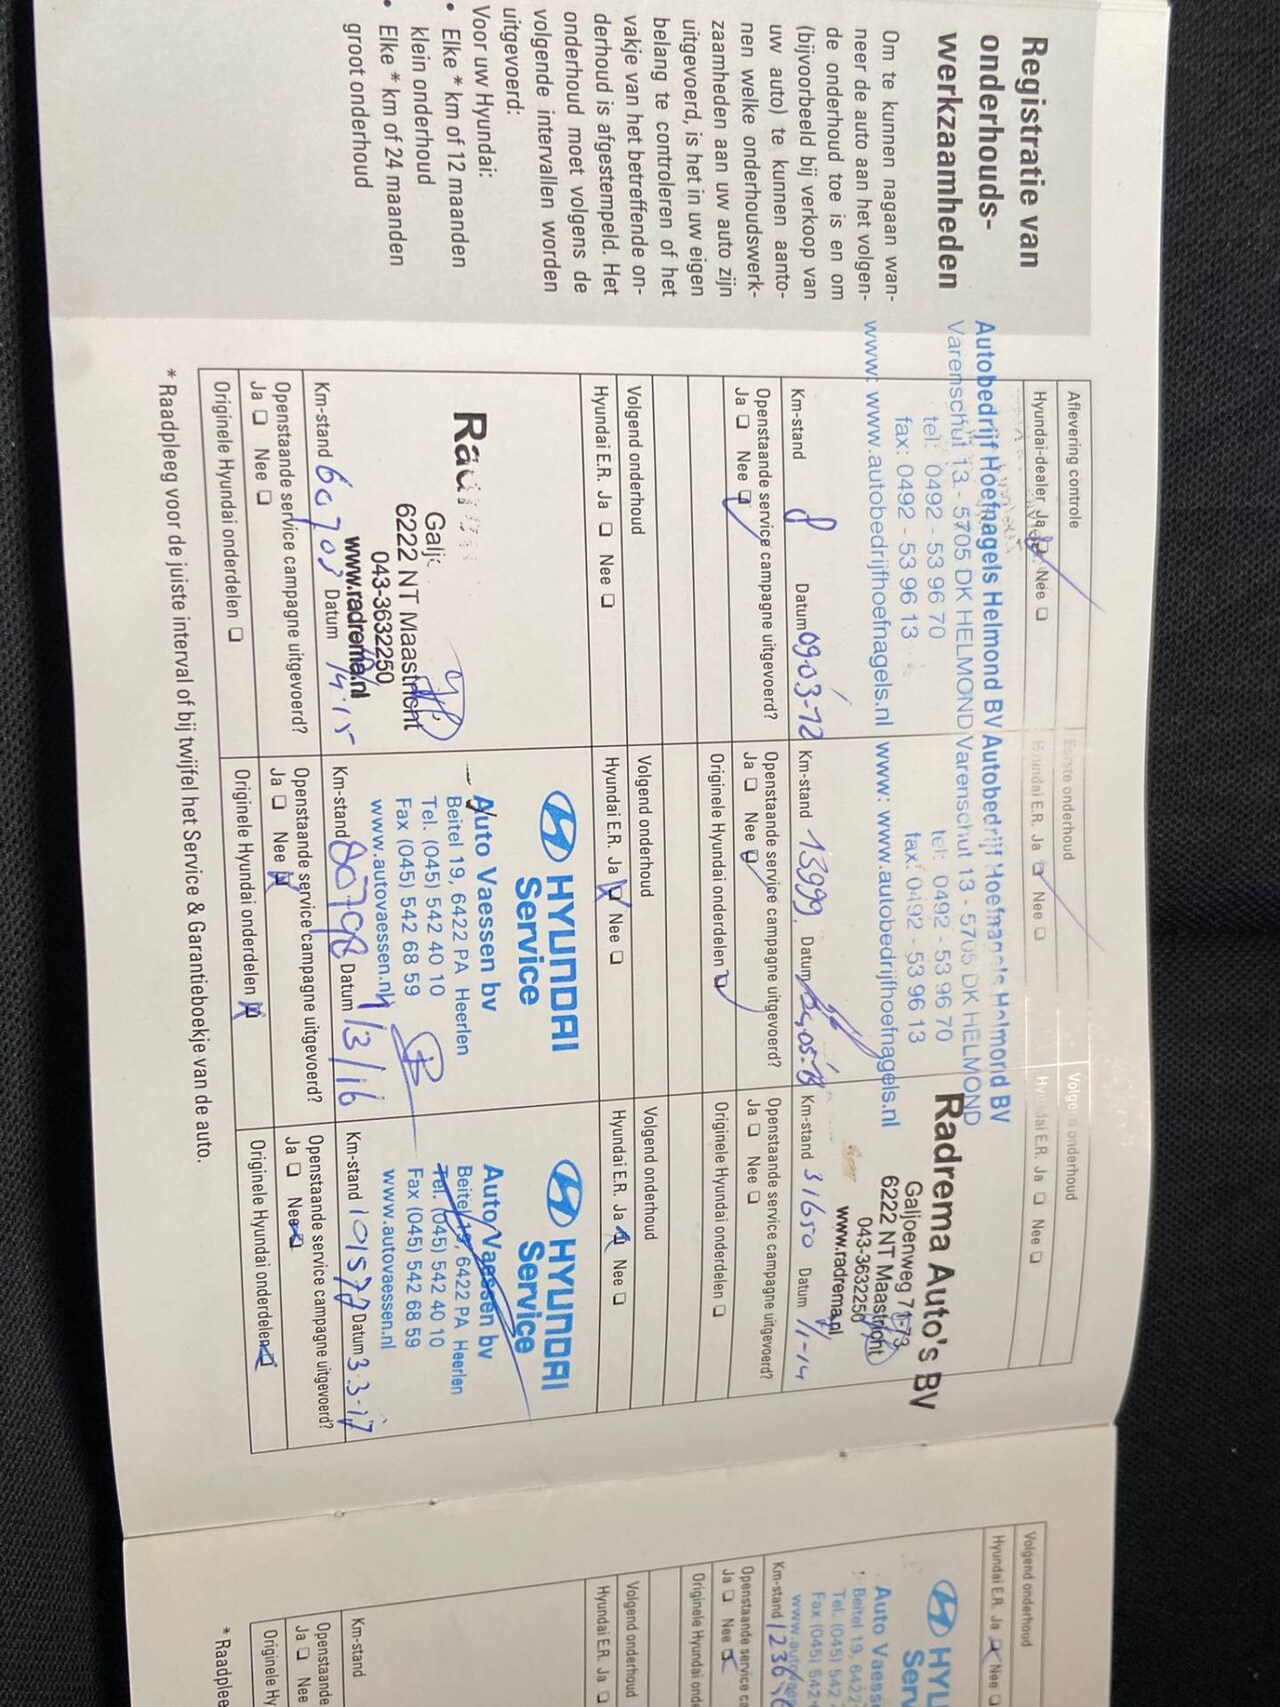 Registratie van
onderhouds-
werkzaamheden
Om te kunnen nagaan wan-
neer de auto aan het volgen-
de onderhoud toe is en om
(bijvoorbeeld bij verkoop van
uw auto) te kunnen aanto-
nen welke onderhoudswerk-
zaamheden aan uw auto zijn
uitgevoerd, is het in uw eigen
belang te controleren of het
vakje van het betreffende on-
derhoud is afgestempeld. Het
onderhoud moet volgens de
volgende intervallen worden
uitgevoerd:
Voor uw Hyundai:
• Elke * km of 12 maanden
klein onderhoud
• Elke * km of 24 maanden
groot onderhoud
Aflevering controle
Hyundai-dealer Ja Nee
Autobedrijf Hoefnagels Helmond BV
Varenschut 13 - 5705 DK HELMOND
tel: 0492 - 53 96 70
fax: 0492 - 53 96 13
www: www.autobedrijfhoefnagels.nl
Km-stand Datum 09-03-12
Openstaande service campagne uitgevoerd?
Ja Nee
Eerste onderhoud
Hyundai E.R. Ja Nee
Autobedrijf Hoefnagels Helmond BV
Varenschut 13 - 5705 DK HELMOND
tel: 0492 - 53 96 70
fax: 0492 - 53 96 13
www: www.autobedrijfhoefnagels.nl
Km-stand 13999 Datum
Openstaande service campagne uitgevoerd?
Ja Nee
Originele Hyundai onderdelen
Volgend onderhoud
Hyundai E.R. Ja Nee
Radrema Auto's BV
Galjoenweg 71-73
6222 NT Maastricht
043-3632250
www.radrema.nl
Km-stand 31650 Datum
Openstaande service campagne uitgevoerd?
Ja Nee
Originele Hyundai onderdelen
Volgend onderhoud
Hyundai E.R. Ja Nee
6222 NT Maastricht
043-3632250
www.radrema.nl
Km-stand 60703 Datum
Openstaande service campagne uitgevoerd?
Ja Nee
Originele Hyundai onderdelen
Volgend onderhoud
Hyundai E.R. Ja Nee
HYUNDAI
Service
Auto Vaessen bv
Beitel 19, 6422 PA Heerlen
Tel. (045) 542 40 10
Fax (045) 542 68 59
www.autovaessen.nl
Km-stand 80798 Datum
Openstaande service campagne uitgevoerd?
Ja Nee
Originele Hyundai onderdelen
Volgend onderhoud
Hyundai E.R. Ja Nee
HYUNDAI
Service
Auto Vaessen bv
Beitel 19, 6422 PA Heerlen
Tel. (045) 542 40 10
Fax (045) 542 68 59
www.autovaessen.nl
Km-stand Datum 3-3-17
Openstaande service campagne uitgevoerd?
Ja Nee
Originele Hyundai onderdelen
* Raadpleeg voor de juiste interval of bij twijfel het Service & Garantieboekje van de auto.
Volgend onderhoud
Hyundai E.R. Ja Nee
HYU
Serv
Auto Vaess
Beitel 19, 6422
Tel. (045) 542
Fax (045) 542
Km-stand
Openstaande service ca
Ja Nee
Originele Hyundai ond
Volgend onderhoud
Hyundai E.R. Ja
Km-stand
Openstaande
Ja Nee
Originele Hy
* Raadplee